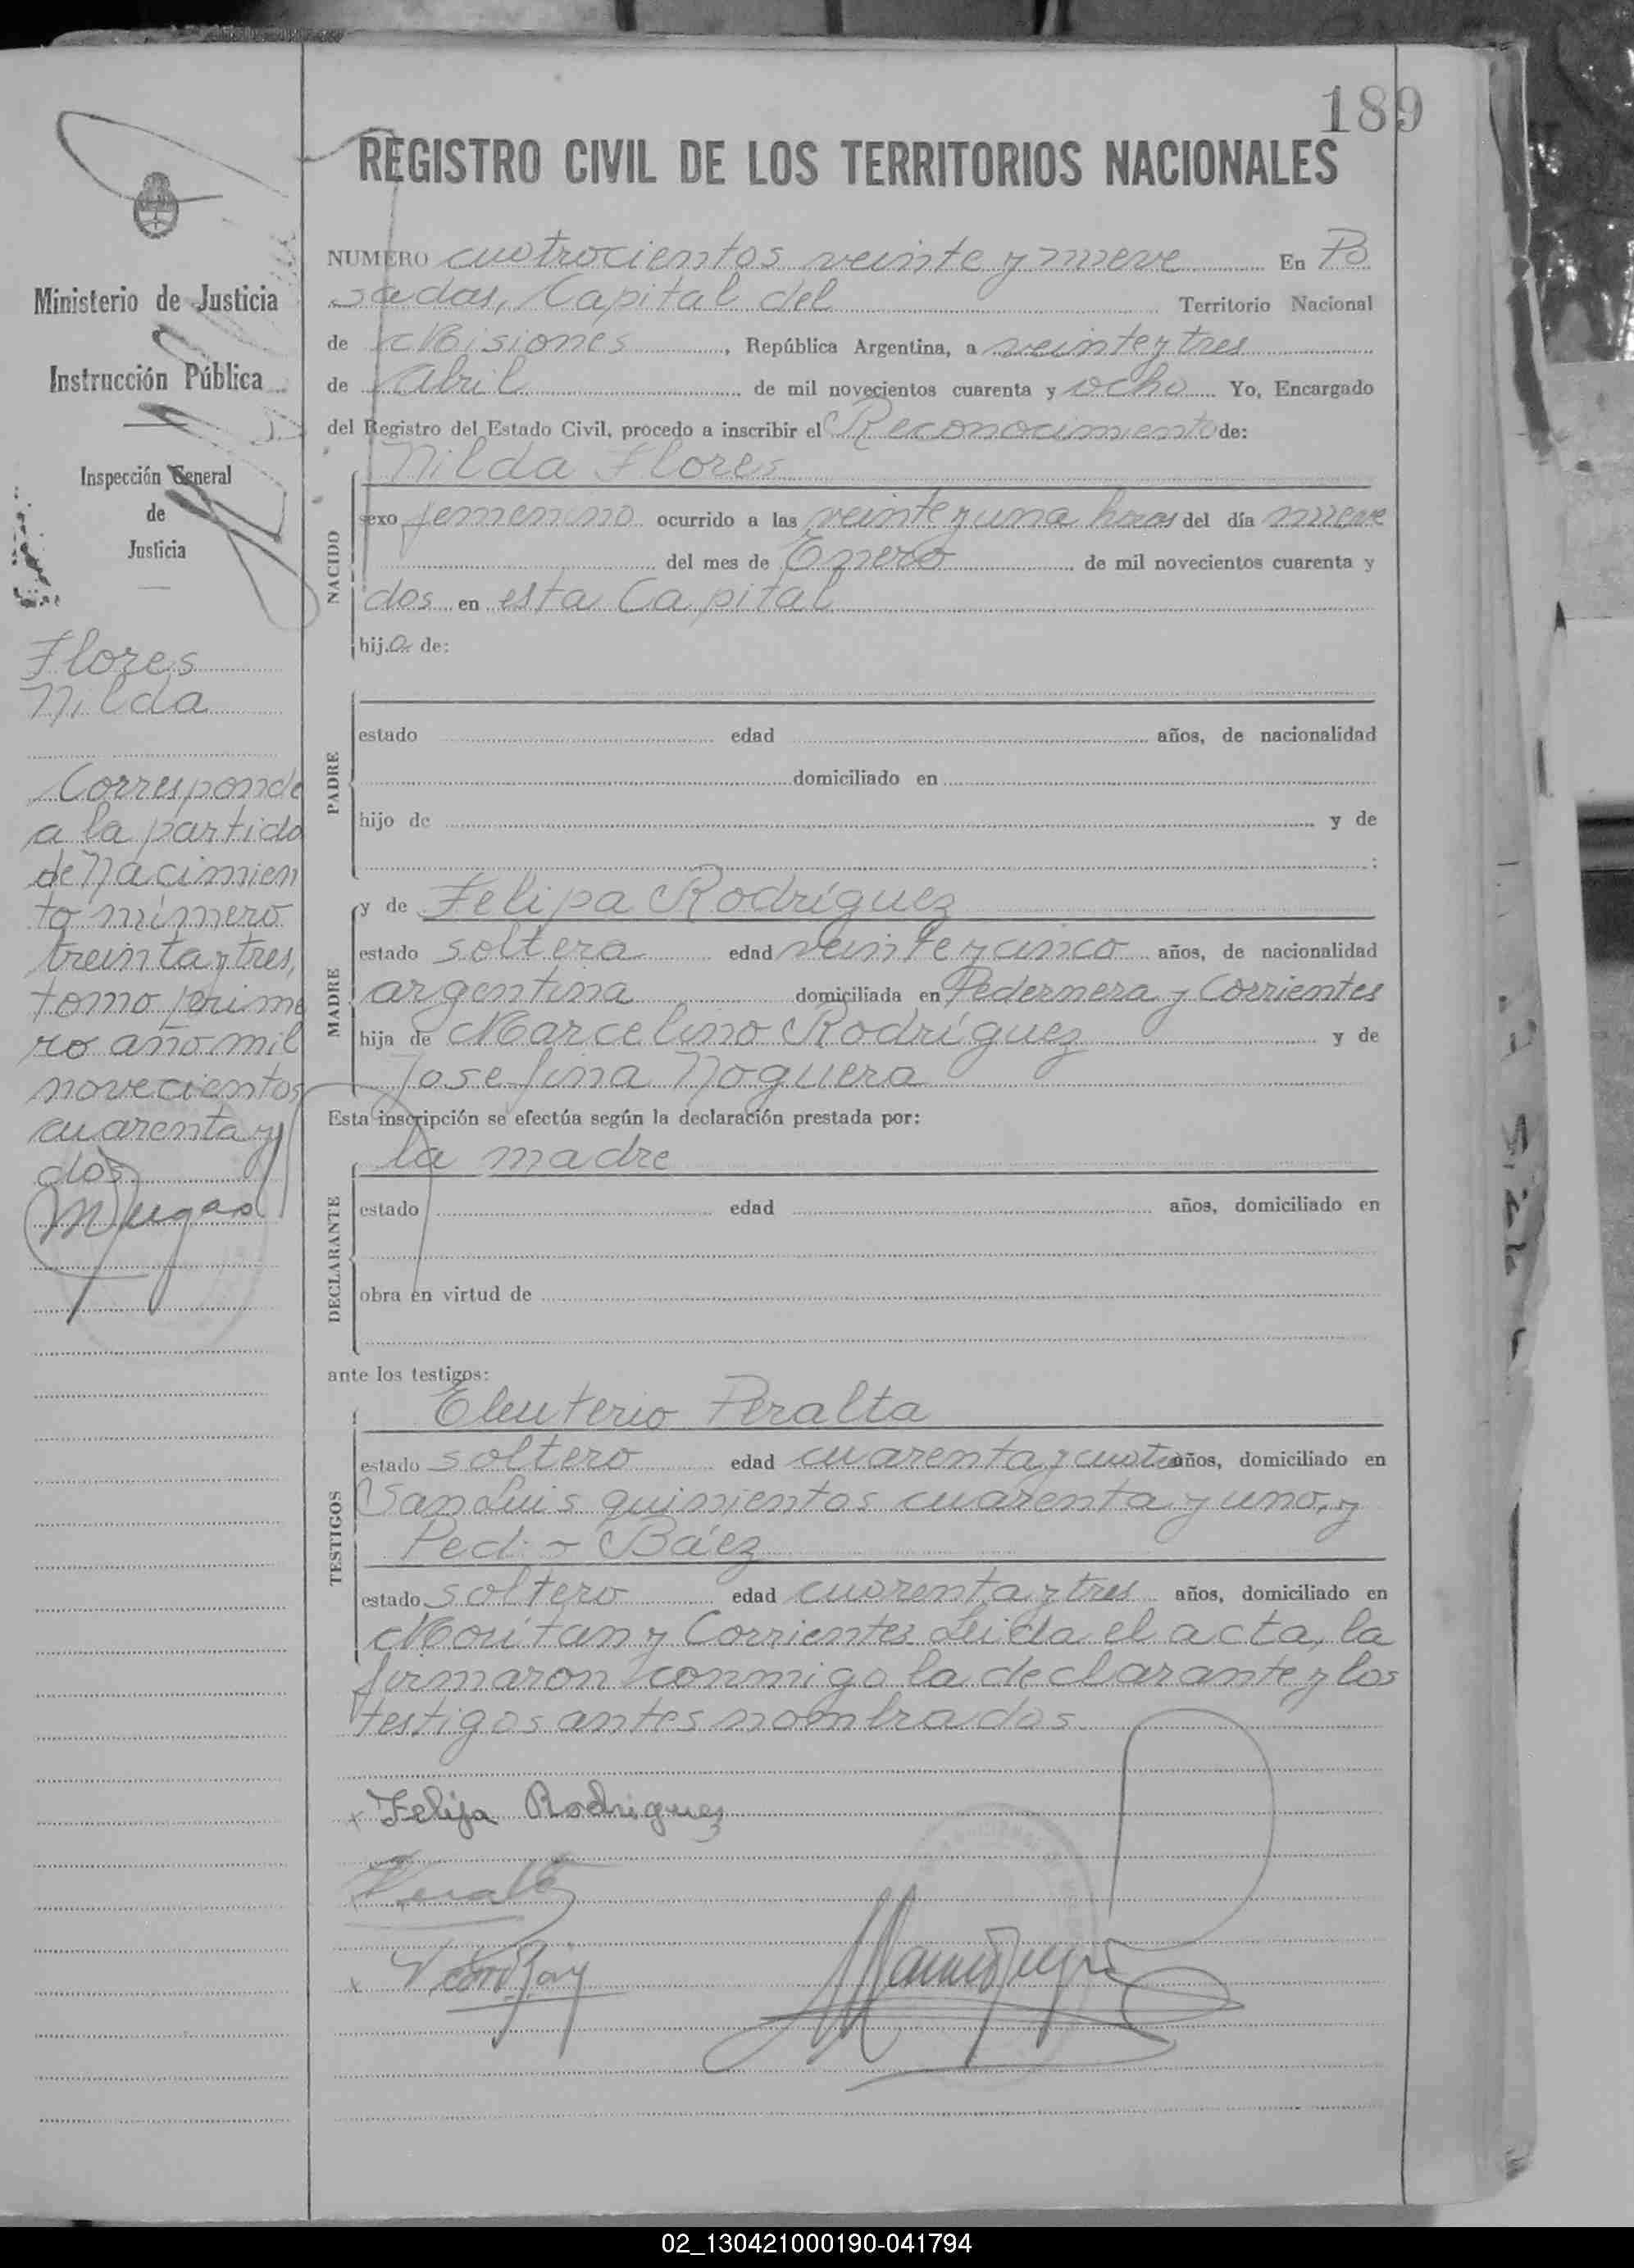 189
REGISTRO CIVIL DE LOS TERRITORIOS NACIONALES
Ministerio de Justicia
e
Instrucción Pública
Inspección General
de
Justicia
Flores
Nilda
Corresponde
a la partida
de Nacimien
to número
treinta y tres,
tomo prime
ro año mil
novecientos
cuarenta y
dos
NUMERO cuatrocientos veinte y nueve En Po
sadas, Capital del Territorio Nacional
de Misiones, República Argentina, a veinte y tres
de Abril de mil novecientos cuarenta y ocho Yo, Encargado
del Registro del Estado Civil, procedo a inscribir el Reconocimiento de:
Nilda Flores
NACIDO
sexo femenino ocurrido a las veinte y una horas del día nueve
del mes de Enero de mil novecientos cuarenta y
dos en esta Capital
hija de:
PADRE
estado edad años, de nacionalidad
domiciliado en
hijo de y de
:
MADRE
y de Felipa Rodríguez
estado soltera edad veinte y cinco años, de nacionalidad
argentina domiciliada en Pedernera y Corrientes
hija de Marcelino Rodríguez y de
Josefina Noguera
Esta inscripción se efectúa según la declaración prestada por:
la madre
DECLARANTE
estado edad años, domiciliado en
obra en virtud de
ante los testigos:
Eleuterio Peralta
TESTIGOS
estado soltero edad cuarenta y cuatro años, domiciliado en
San Luis quinientos cuarenta y uno, y
Pedro Báez
estado soltero edad cuarenta y tres años, domiciliado en
y Corrientes Leida el acta, la
firmaron conmigo la declarante y los
testigos antes nombrados
x Felipa Rodriguez
Peralta
x
02_130421000190-041794